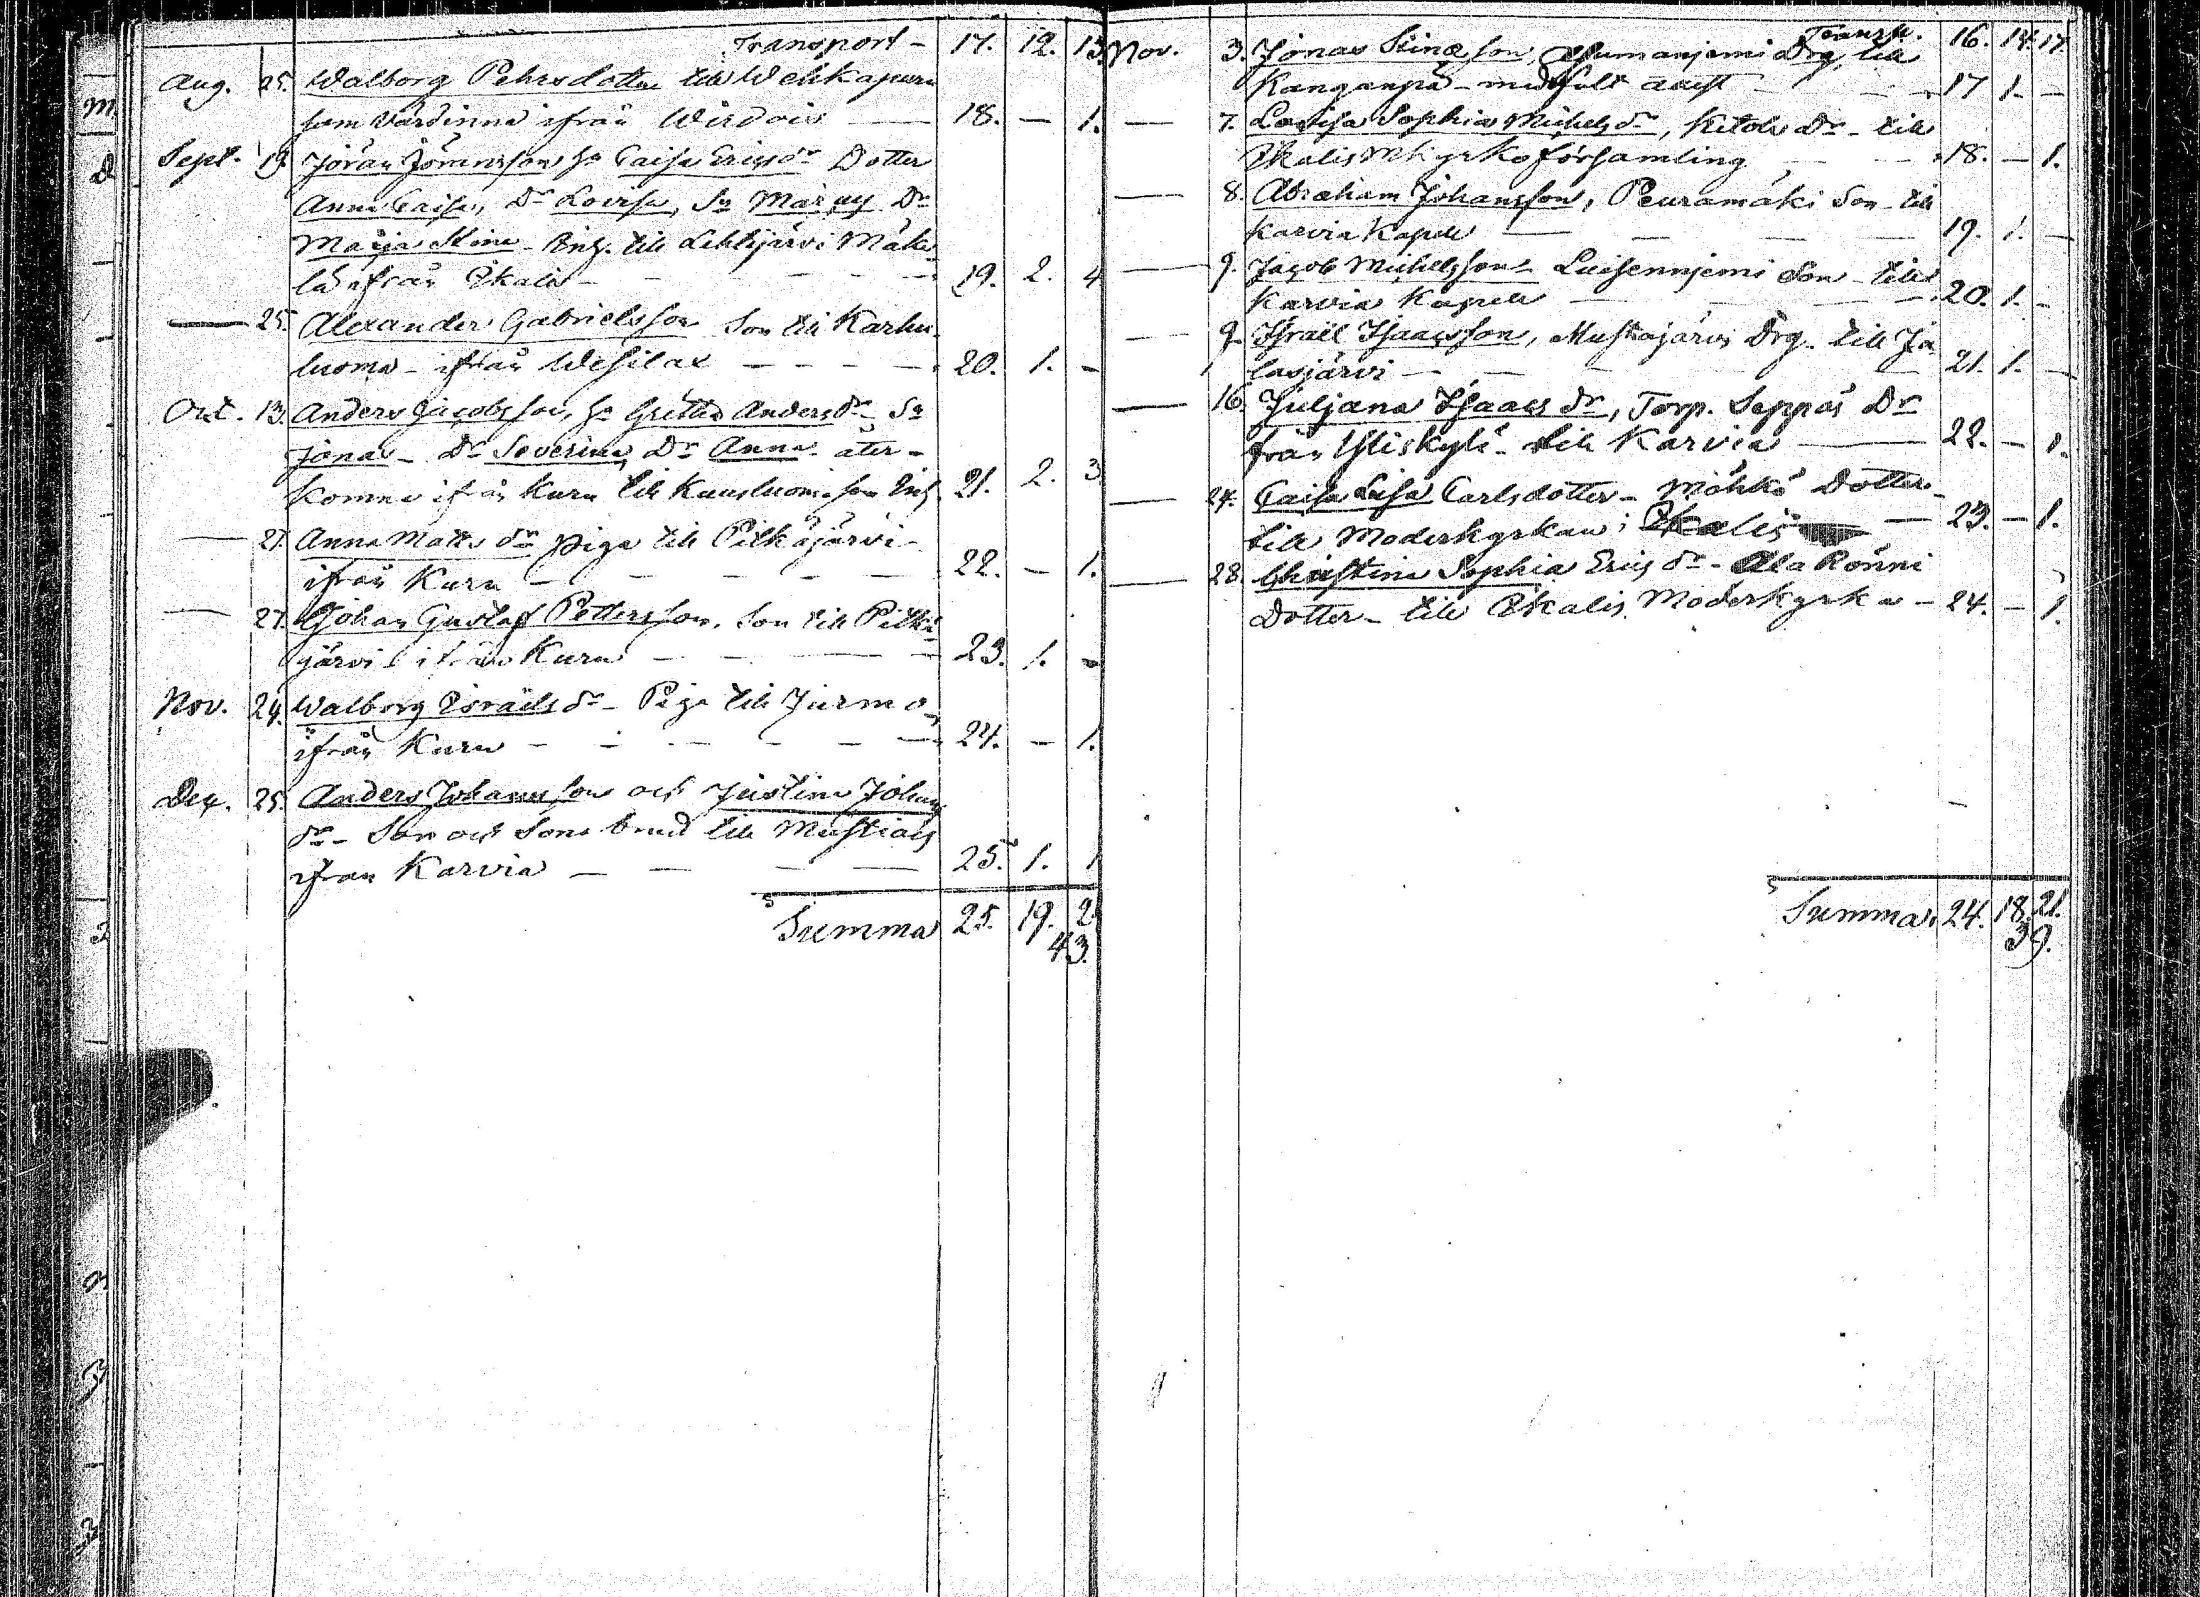 Transport - 17. 12. 13.
Aug. 25. Walborg Pehrsdotter till Wehkapuru
som Värdinna ifrån Wirdois — 18. — 1.
Sept. 13. Jöran Jöransson, Hu Caisa Ericsdr Dotter
Anna Caisa, Dr Lovisa, Sn Marcus Dr
Maria Stina - Inh. till Lehtijärvi Mäke
lä ifrån Ikalis - 19. 2. 4
— 25. Alexander Gabrielsson Son till Karhu
luoma - ifrån Wesilax - - - - 20. 1. -
Oct. 13. Anders Jacobsson, Hu Gretha Andersdr Sn
Jonas - Dr Severina, Dr Anna - åter-
komne ifrån Kuru till Kuusluoma som Inh. 21. 2. 3
— 27. Anna Matts dr piga till Pitkäjärvi -
ifrån Kuru - - - - - 22. - 1.
— 27. Johan Gustaf Pettersson, Son till Pitkä
järvi ifrån Kuru - - - - 23. 1. -
Nov. 24. Walborg Isräils dr - Piga till Jurmo
ifrån Kuru - - - - - - 24. - 1.
Dec. 25. Anders Johansson och Justina Johans
dr - Son och Sons brud till Mustiais
ifrån Karvia - - - - 25. 1. 1
Summa 25. 19. 2
43.
Transp. 16. 14. 17.
Nov. 3. Jonas Stina son, Drg, till
Kanganpä - med - - 17 1. -
— 7. Lovisa Sophia Michelsdr, Ketola Dr - till
Ikalis Mkyrkoförsamling - - 18. - 1.
— 8. Abraham Johansson, Peuramäki Son - till
Karvia Kapell - - - - 19. 1. -
— 9. Jacob Michelsson - Luisenniemi Son - till
Karvia Kapell - - - - 20. 1. -
— 9. Israël Isaacsson, Mustajärvi Drg - till Ja
lasjärvi - - - - 21. 1. -
— 16. Juljana Isaacs dr, Torp. Seppäs Dr
från Yliskylä - till Karvia - 22. - 1.
— 24. Caisa Lisa Carlsdotter - Möhkö Dotter -
till Moderkyrkan i Ikalis - 23. - 1.
— 28. Christina Sophia Erics dr - Ala Rönni
Dotter - till Ikalis Moderkyrka - 24. - 1.
Summa 24. 18. 21.
39.